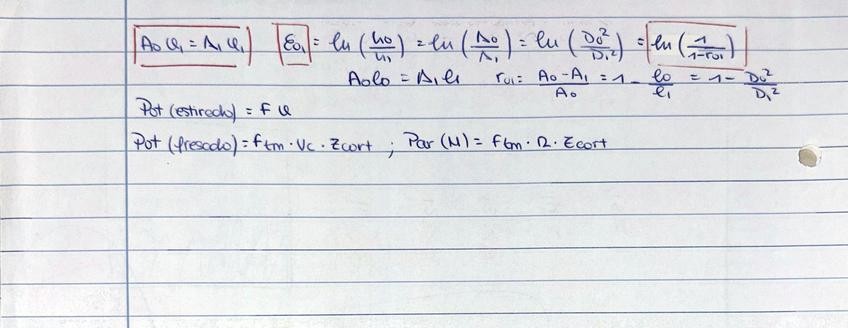 A₀ v₁ = A₁ v₁   ε₀₁ = ln (h₀/h₁) = ln (A₀/A₁) = ln (D₀²/D₁²) = ln (1/(1-r₀₁))
A₀l₀ = A₁l₁   r₀₁ = (A₀-A₁)/A₀ = 1 - l₀/l₁ = 1 - D₀²/D₁²
Pot (estirado) = F v
Pot (fresado) = Ftm · Vc · Zcort ; Par (M) = Ftm · R · Zcort